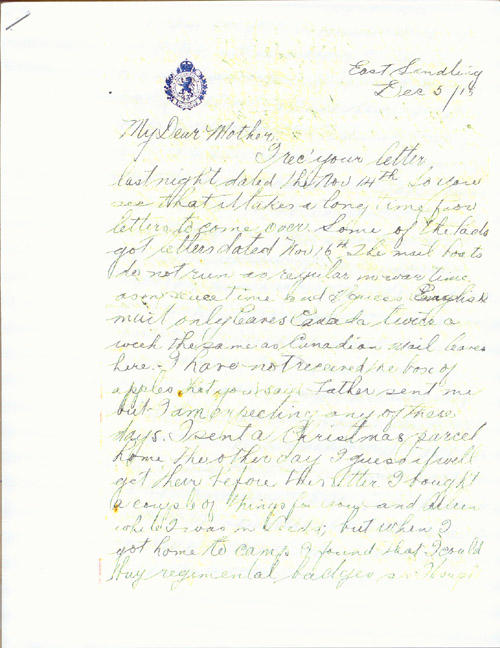 East Sandling
Dec 5/15
My Dear Mother,
I rec' your letter
last night dated the Nov 14th So you
see that it takes a long time foor
letters to come over. Some of the lads
got letters dated Nov 16th The mail boats
do not run as regular in war time
as in peace time and I guess English
mail only leaves Canada twice a
week the same as Canadian mail leaves
here. I have not received the box of
apples that you say Father sent me
but I am expecting any of these
days. I sent a Christmas parcel
home the other day I guess it will
get their before this letter I bought
a couple of things for you and
while I was in Leeds, but when I
got home to camp I found that I could
buy regimental badges so I